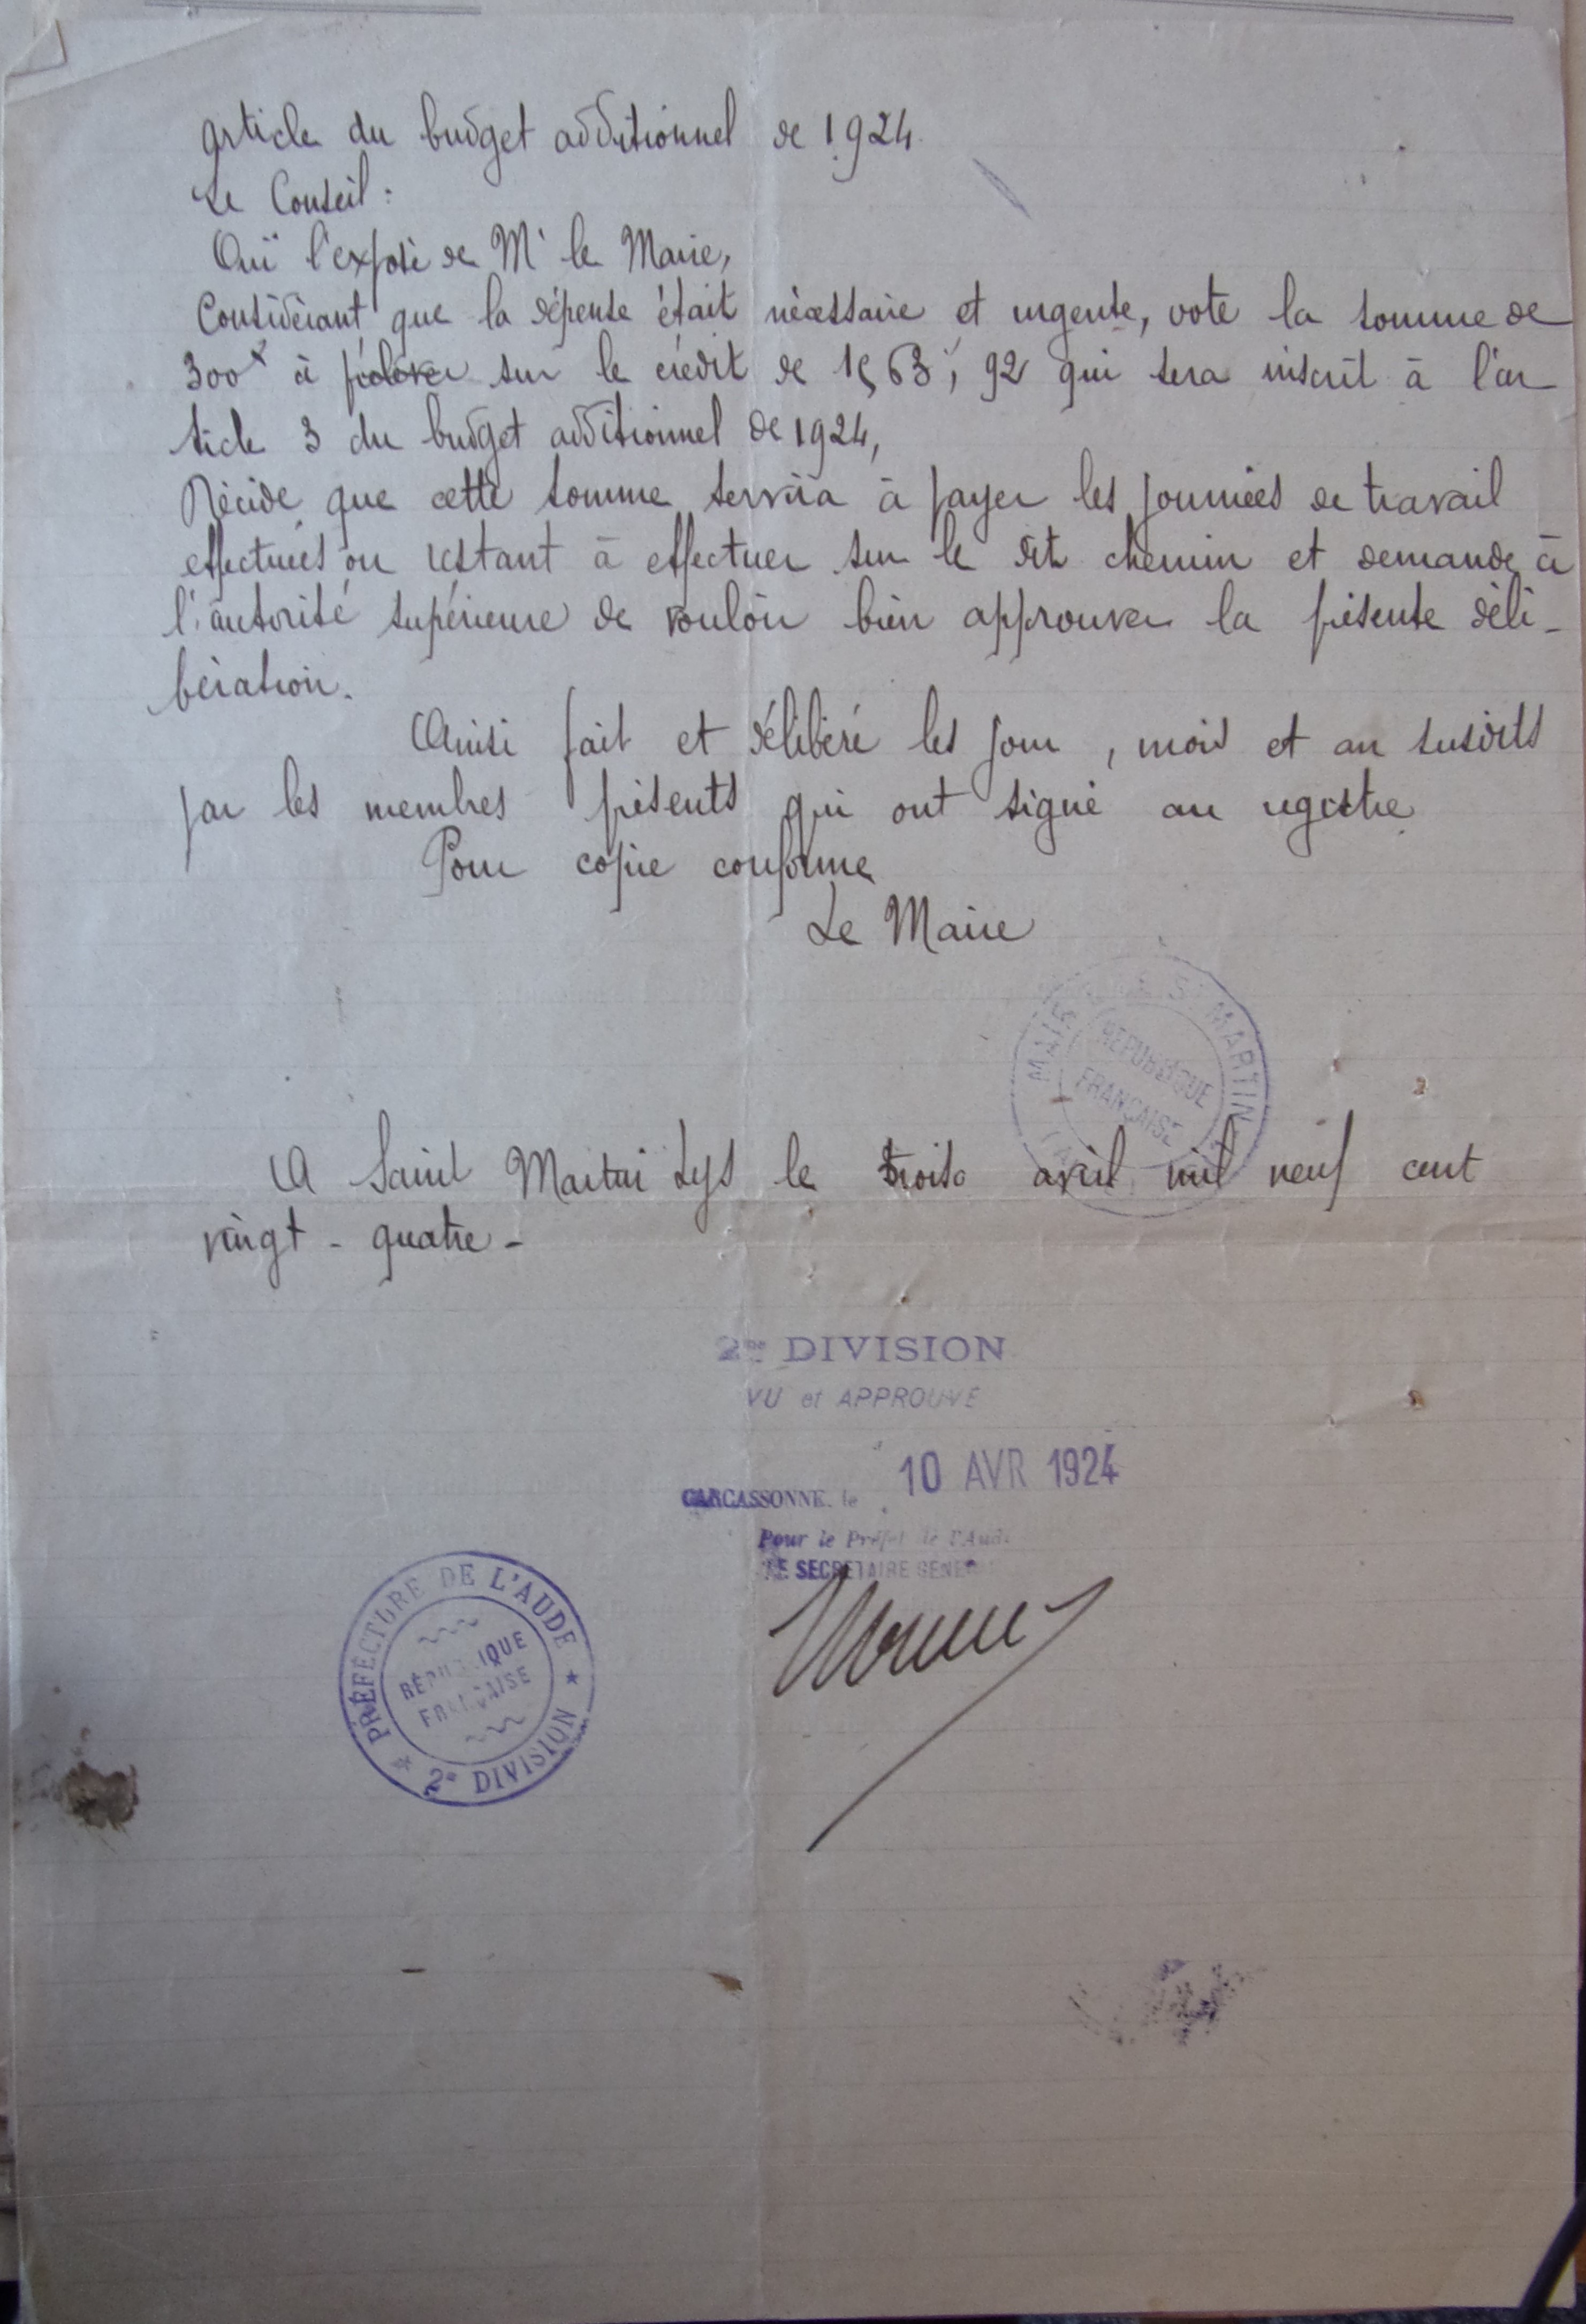 article du budget additionnel de 1924.
Le Conseil :
Ouï l'exposé de Mr le Maire,
Considérant que la dépense était nécessaire et urgente, vote la somme de
300f à prélever sur le crédit de 1563f, 92 qui sera inscrit à l'ar
ticle 3 du budget additionnel de 1924,
Décide que cette somme servira à payer les journées de travail
effectuées ou restant à effectuer sur le dit chemin et demande à
l'autorité supérieure de vouloir bien approuver la présente déli-
bération.
Ainsi fait et délibéré les jour, mois et an susdits
par les membres présents qui ont signé au registre.
Pour copie conforme
Le Maire
MAIRIE ST MARTIN
RÉPUBLIQUE
FRANÇAISE
A Saint Martin Lys le trois avril mil neuf cent
vingt - quatre -
2me DIVISION
VU et APPROUVÉ
CARCASSONNE, le 10 AVR 1924
Pour le Préfet de l'Aude
LE SECRETAIRE GENER
PRÉFECTURE DE L'AUDE
RÉPUBLIQUE
FRANÇAISE
2e DIVISION